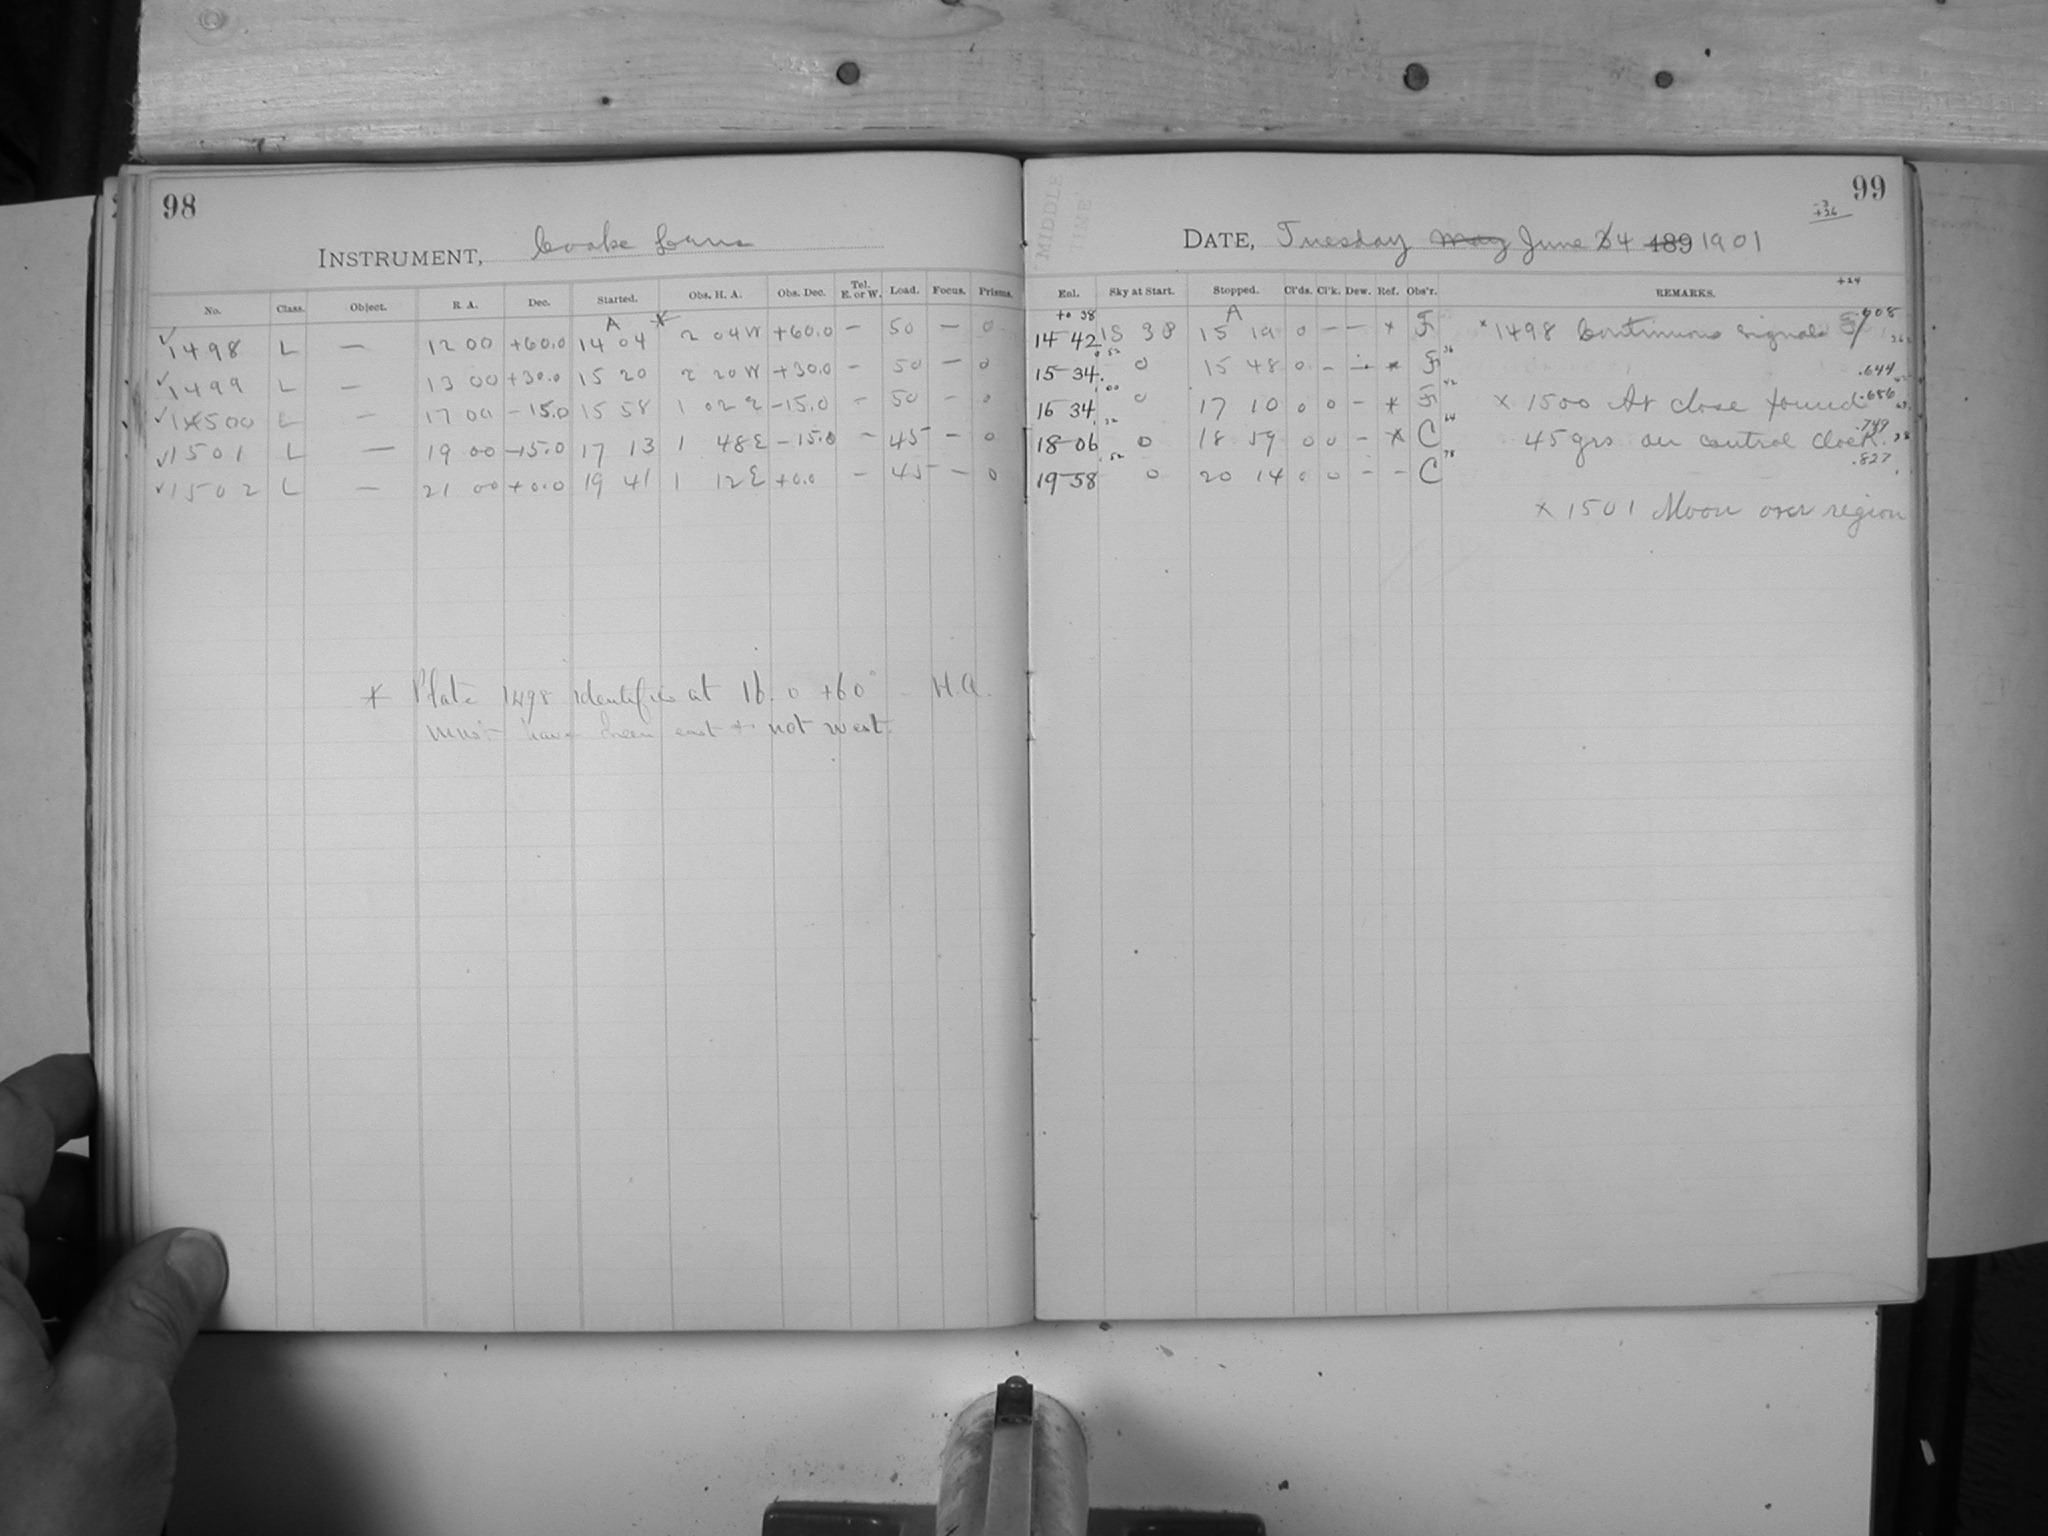 98
INSTRUMENT, Cooke Lens
No. Class. Object. R. A. Dec. Started. Obs. H. A. Obs. Dec. Tel. E. or W. Load. Focus. Prisms.
A *
✓1498 L — 12 00 +60.0 14 04 2 04W +60.0 — 50 — 0
✓1499 L — 13 00 +30.0 15 20 2 20W +30.0 — 50 — 0
✓1500 L — 17 00 -15.0 15 58 1 02E -15.0 — 50 — 0
✓1501 L — 19 00 -15.0 17 13 1 48E -15.0 — 45 — 0
✓1502 L — 21 00 +0.0 19 41 1 12E +0.0 — 45 — 0
* Plate 1498 identifies at 16.0 +60° - H.A.
must have been east + not west.
99
-3
+26
MIDDLE TIME
DATE, Tuesday May June 24 189 1901
+24
Enl. Sky at Start. Stopped. Cl'ds. Cl'k. Dew. Ref. Obs'r. REMARKS.
+0 38 A .608
14-42 15 38 15 19 0 — — * F * 1498 Continuous signals F
.52 36 .644
15-34 0 15 48 0 — — * F
1.00 42 .686
16 34 0 17 10 0 0 — * F × 1500 At close found
1.32 64 .749
18-06 0 18 59 0 0 — * C 45 grs on control clock.
1.52 78 .827
19-58 0 20 14 0 0 — — C
× 1501 Moon over region